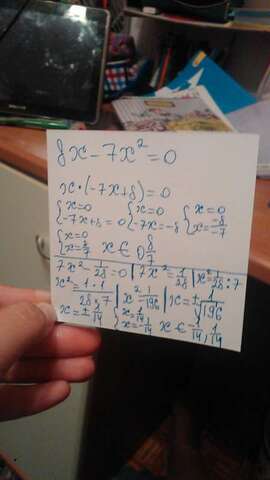 8x - 7x² = 0
x·(-7x+8) = 0
{x=0 {x=0 {x=0
{-7x+8=0 {-7x=-8 {x=-8/-7
{x=0
{x=8/7 x∈ 0 8/7
7x² - 1/28 = 0 | 7x² = 1/28 | x² = 1/28 : 7
x² = 1·1/28·7 | x² = 1/196 | x = ±√1/196
x = ± 1/14 {x=1/14 x∈ -1/14, 1/14
{x=-1/14